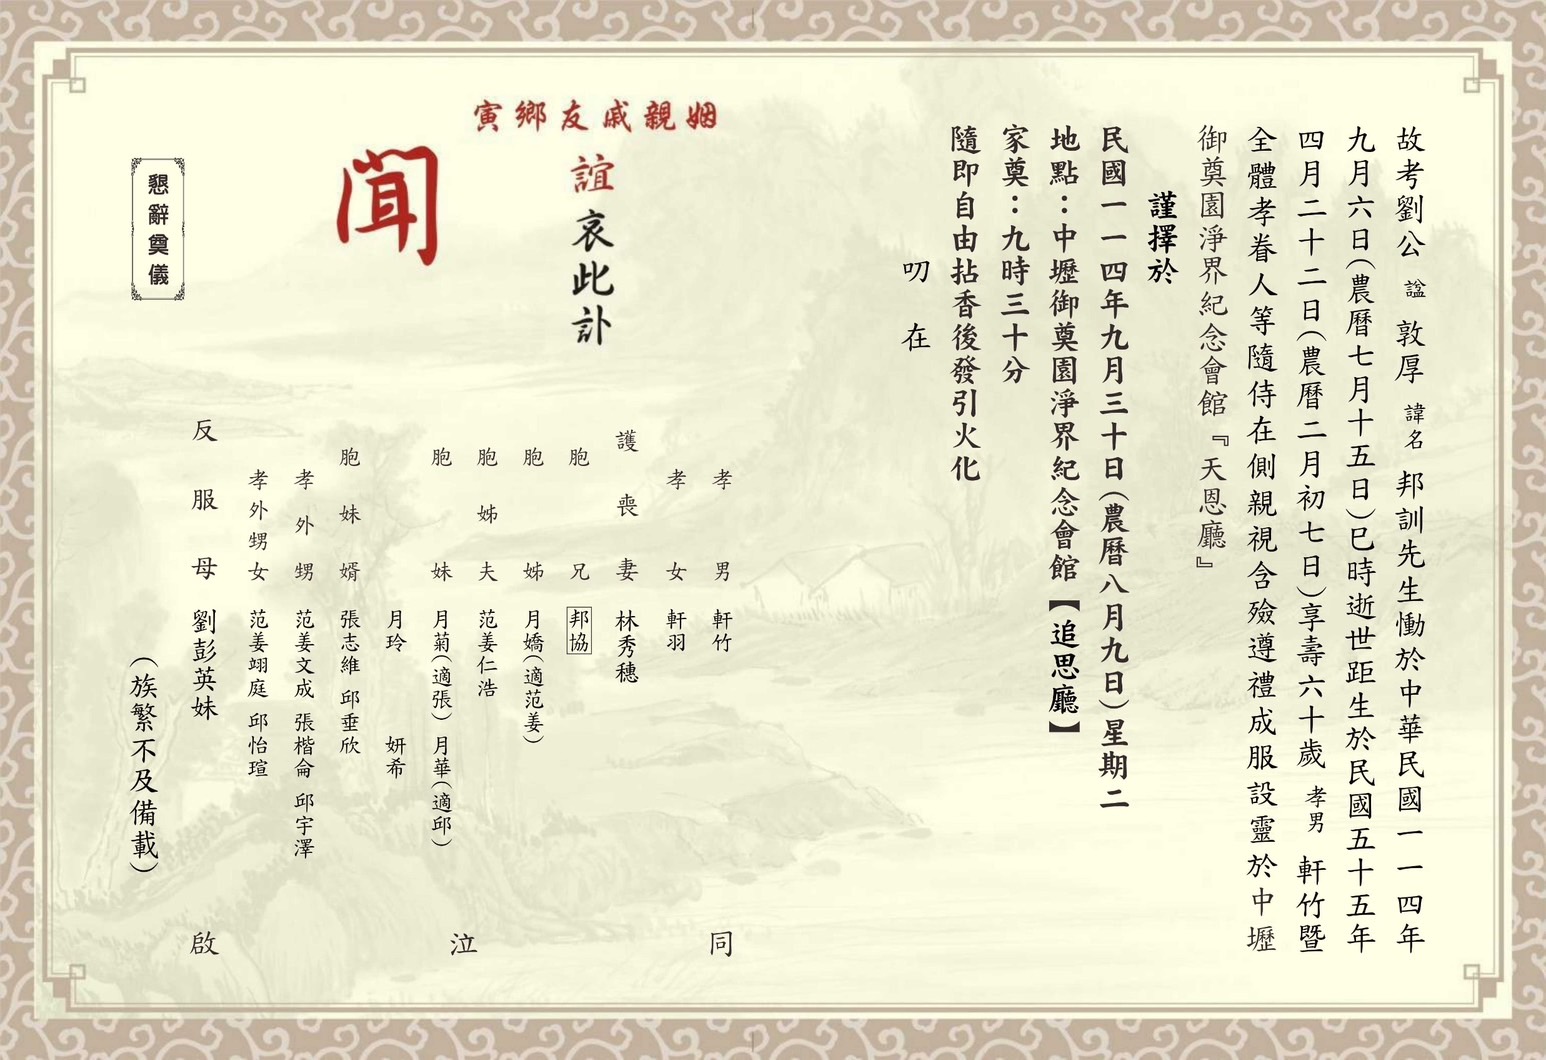 故考劉公 諡 敦厚 諱名 邦訓先生慟於中華民國一一四年
九月六日(農曆七月十五日)巳時逝世距生於民國五十五年
四月二十二日(農曆二月初七日)享壽六十歲 孝男 軒竹暨
全體孝眷人等隨侍在側親視含殮遵禮成服設靈於中壢
御奠園淨界紀念會館『天恩廳』
謹擇於
民國一一四年九月三十日(農曆八月九日)星期二
地點：中壢御奠園淨界紀念會館【追思廳】
家奠：九時三十分
隨即自由拈香後發引火化
叨在
姻親戚友鄉寅
誼哀此訃
聞
懇辭奠儀
孝男 軒竹
孝女 軒羽
護喪妻 林秀穗
胞兄 邦協
胞姊 月嬌(適范姜)
胞姊夫 范姜仁浩
胞妹 月菊(適張) 月華(適邱)
月玲 妍希
胞妹婿 張志維 邱垂欣
孝外甥 范姜文成 張楷侖 邱宇澤
孝外甥女 范姜翊庭 邱怡瑄
反服母 劉彭英妹
(族繁不及備載)
同泣啟